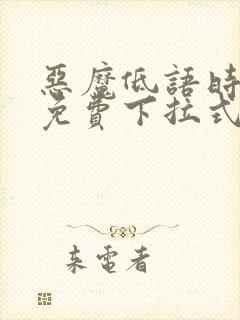 惡魔低語時
免費下拉式
来電者